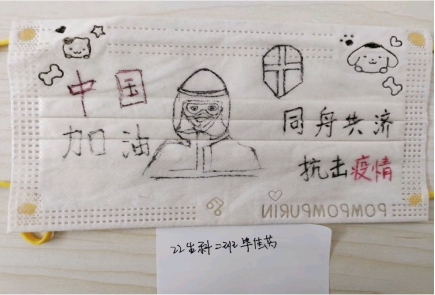 中国
加油
同舟共济
抗击疫情
POMPOMPURIN
22生科二班 毕佳芮